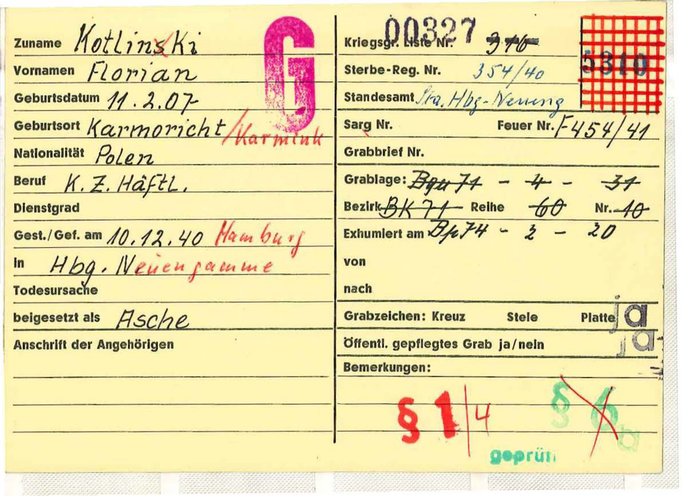 Zuname Kotlinski
Vornamen Florian
Geburtsdatum 11.2.07
Geburtsort Karmoricht/Karmink
Nationalität Polen
Beruf K.Z. Häftl.
Dienstgrad
Gest./Gef. am 10.12.40 Hamburg
in Hbg. Neuengamme
Todesursache
beigesetzt als Asche
Anschrift der Angehörigen
G
00327
Kriegsgr. Liste Nr. 316
5310
Sterbe-Reg. Nr. 354/40
Standesamt Hbg-Neueng
Sarg Nr. Feuer Nr. F454/41
Grabbrief Nr.
Grablage: 71 - 4 - 31
Bezirk BK 71 Reihe 60 Nr. 10
Exhumiert am Bp 74 - 2 - 20
von
nach
Grabzeichen: Kreuz Stele Platte ja
Öffentl. gepflegtes Grab ja/nein ja
Bemerkungen:
§ 1/4 § 6
geprü